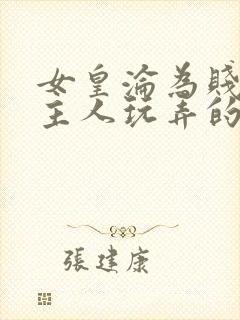 女皇淪為賤
主人玩弄的
張建康